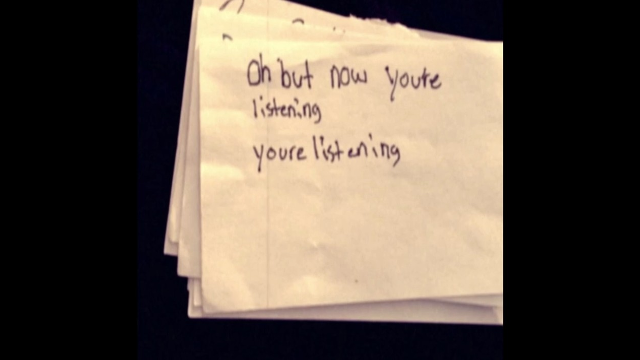 Oh but now you're
listening
youre listening